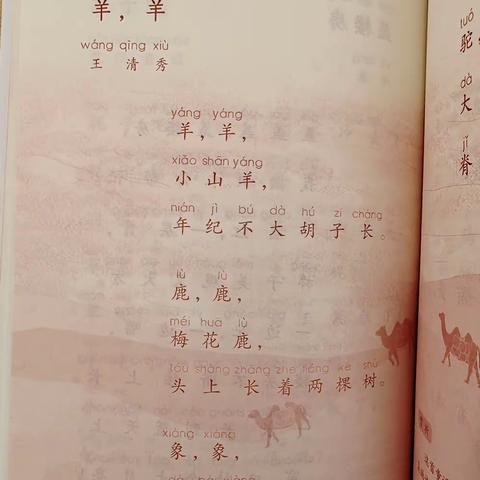 羊，羊
wáng qīng xiù
王 清 秀
yáng yáng
羊，羊，
xiǎo shān yáng
小 山 羊，
nián jì bú dà hú zi cháng
年 纪 不 大 胡 子 长。
lù lù
鹿，鹿，
méi hua lù
梅 花 鹿，
tóu shàng zhǎng zhe liǎng kē shù
头 上 长 着 两 棵 树。
xiàng xiàng
象，象，
tuó
驼
dà
大
jǐ
脊